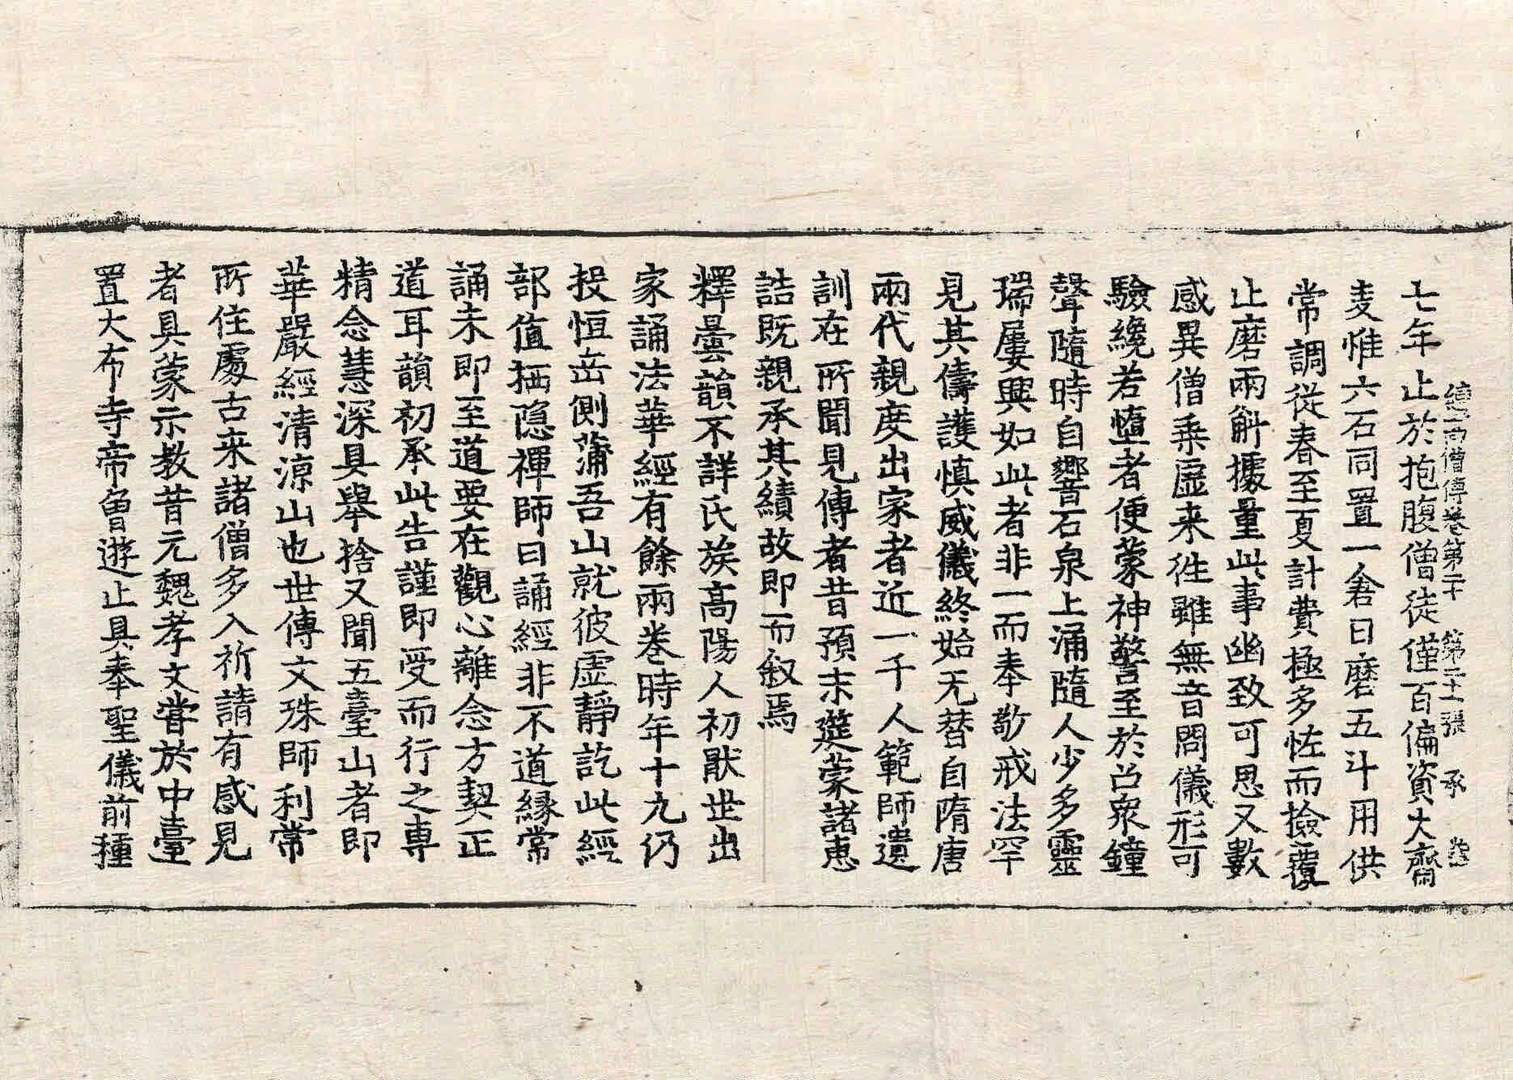 續高僧傳卷第二十 第二十一張 承
七年止於抱腹僧徒僅百偏資大齋
麦惟六石同置一倉日磨五斗用供
常調從春至夏計費極多怪而撿覆
止磨兩斛據量此事幽致可思又數
感異僧乘虛来往雖無音問儀形可
驗纔若墮者便蒙神警至於召衆鐘
聲隨時自響石泉上涌隨人少多靈
瑞屢興如此者非一而奉敬戒法罕
見其儔護慎威儀終始无替自隋唐
兩代親度出家者近一千人範師遺
訓在所聞見傳者昔預末筵蒙諸惠
詰既親承其績故即而叙焉
釋曇韻不詳氏族高陽人初猒世出
家誦法華經有餘兩卷時年十九仍
投恒岳側蒲吾山就彼虛靜訖此經
部值栖隱禪師曰誦經非不道緣常
誦未即至道要在觀心離念方契正
道耳韻初承此告謹即受而行之專
精念慧深具舉捨又聞五臺山者即
華嚴經清涼山也世傳文殊師利常
所住處古来諸僧多入祈請有感見
者具蒙示教昔元魏孝文甞於中臺
置大布寺帝曾遊止具奉聖儀前種